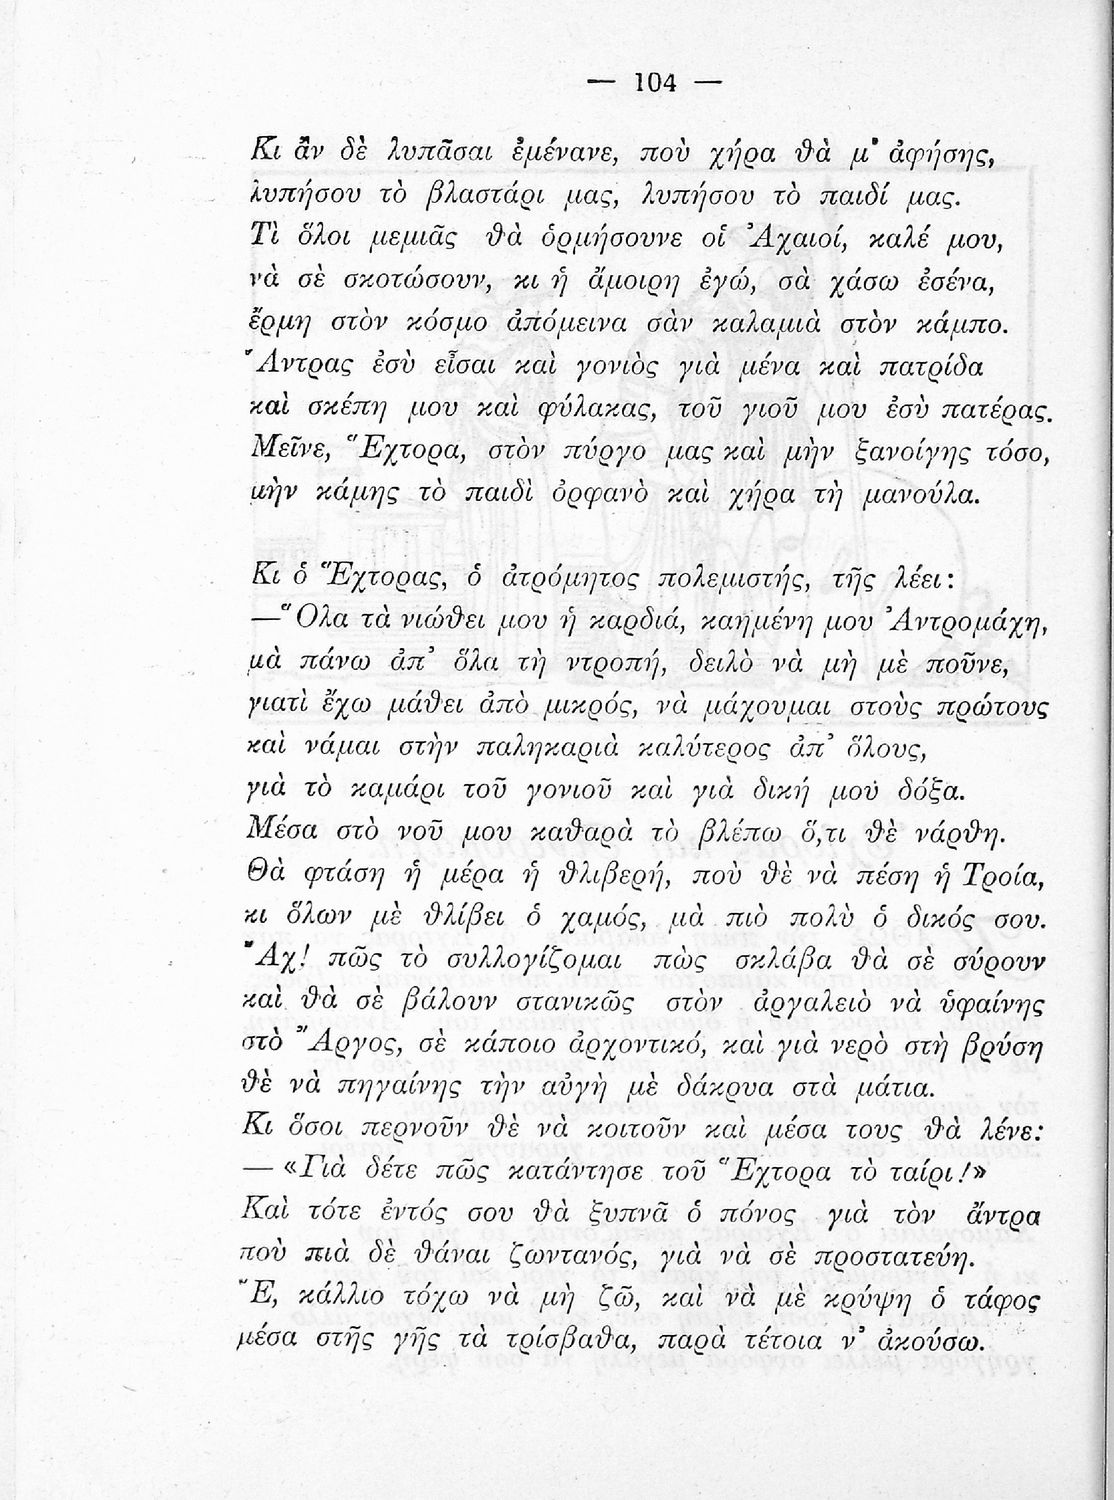 — 104 —
Κι ἂν δὲ λυπᾶσαι ἐμένανε, ποὺ χήρα θὰ μ' ἀφήσης,
λυπήσου τὸ βλαστάρι μας, λυπήσου τὸ παιδί μας.
Τὶ ὅλοι μεμιᾶς θὰ ὁρμήσουνε οἱ Ἀχαιοί, καλέ μου,
νὰ σὲ σκοτώσουν, κι ἡ ἄμοιρη ἐγώ, σὰ χάσω ἐσένα,
ἔρμη στὸν κόσμο ἀπόμεινα σὰν καλαμιὰ στὸν κάμπο.
Ἄντρας ἐσὺ εἶσαι καὶ γονιὸς γιὰ μένα καὶ πατρίδα
καὶ σκέπη μου καὶ φύλακας, τοῦ γιοῦ μου ἐσὺ πατέρας.
Μεῖνε, Ἕχτορα, στὸν πύργο μας καὶ μὴν ξανοίγης τόσο,
μὴν κάμης τὸ παιδὶ ὀρφανὸ καὶ χήρα τὴ μανούλα.
Κι ὁ Ἕχτορας, ὁ ἀτρόμητος πολεμιστής, τῆς λέει:
—Ὅλα τὰ νιώθει μου ἡ καρδιά, καημένη μου Ἀντρομάχη,
μὰ πάνω ἀπ' ὅλα τὴ ντροπή, δειλὸ νὰ μὴ μὲ ποῦνε,
γιατὶ ἔχω μάθει ἀπὸ μικρός, νὰ μάχουμαι στοὺς πρώτους
καὶ νάμαι στὴν παληκαριὰ καλύτερος ἀπ' ὅλους,
γιὰ τὸ καμάρι τοῦ γονιοῦ καὶ γιὰ δική μου δόξα.
Μέσα στὸ νοῦ μου καθαρὰ τὸ βλέπω ὅ,τι θὲ νάρθη.
Θὰ φτάση ἡ μέρα ἡ θλιβερή, ποὺ θὲ νὰ πέση ἡ Τροία,
κι ὅλων μὲ θλίβει ὁ χαμός, μὰ πιὸ πολὺ ὁ δικός σου.
Ἄχ! πῶς τὸ συλλογίζομαι πὼς σκλάβα θὰ σὲ σύρουν
καὶ θὰ σὲ βάλουν στανικῶς στὸν ἀργαλειὸ νὰ ὑφαίνης
στὸ Ἄργος, σὲ κάποιο ἀρχοντικό, καὶ γιὰ νερὸ στὴ βρύση
θὲ νὰ πηγαίνης τὴν αὐγὴ μὲ δάκρυα στὰ μάτια.
Κι ὅσοι περνοῦν θὲ νὰ κοιτοῦν καὶ μέσα τους θὰ λένε:
— «Γιὰ δέτε πῶς κατάντησε τοῦ Ἕχτορα τὸ ταίρι!»
Καὶ τότε ἐντός σου θὰ ξυπνᾶ ὁ πόνος γιὰ τὸν ἄντρα
ποὺ πιὰ δὲ θάναι ζωντανός, γιὰ νὰ σὲ προστατεύη.
Ἔ, κάλλιο τόχω νὰ μὴ ζῶ, καὶ νὰ μὲ κρύψη ὁ τάφος
μέσα στῆς γῆς τὰ τρίσβαθα, παρὰ τέτοια ν' ἀκούσω.